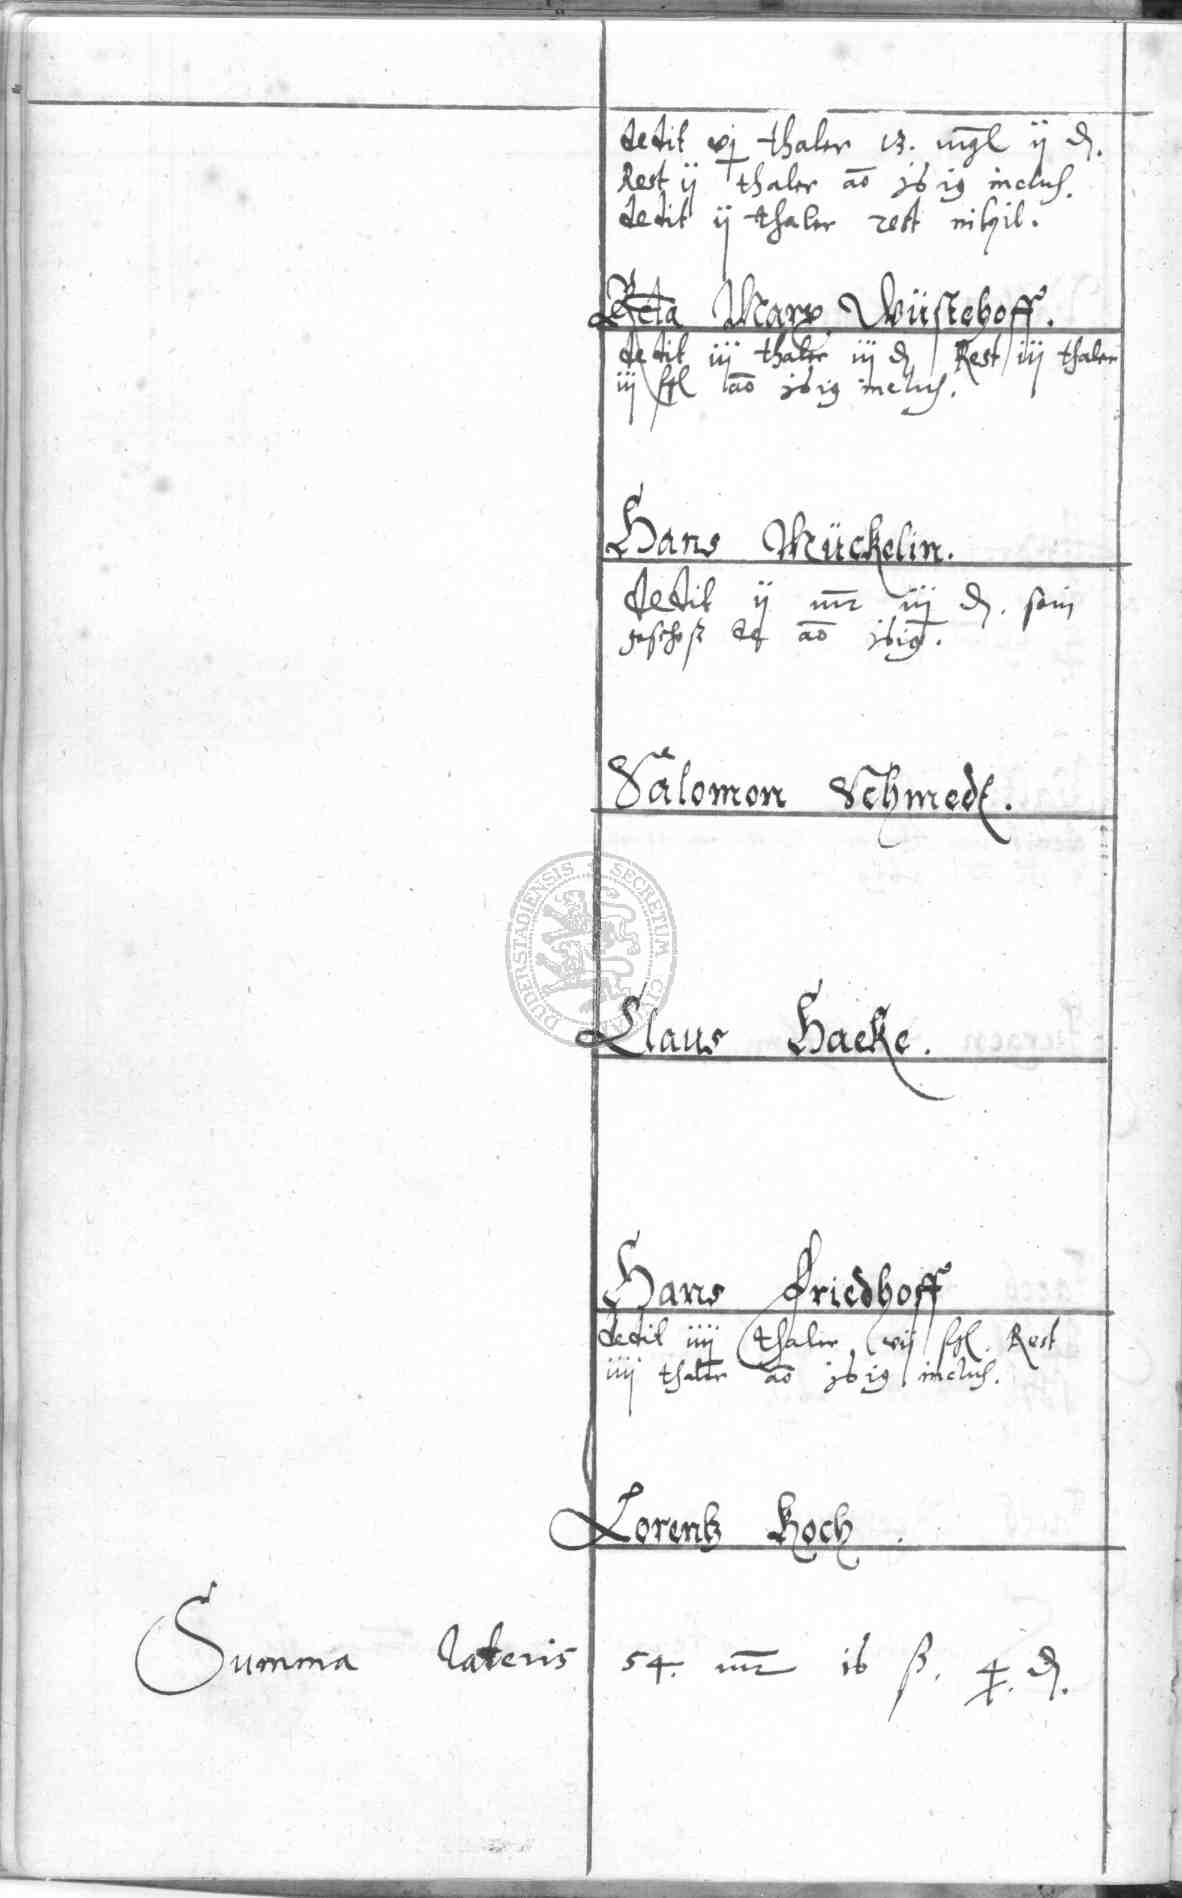 dedit vj thaler 13. mgl ij d.
Rest ij thaler ao 1619 inclus.
dedit ij thaler rest nihil.
Marx Wüstehoff.
dedit iij thaler iij d Rest iij thaler
iij ßl ao 1619 inclus.
Hans Mückelin.
dedit ij mr iiij d. sein
geschoß de ao 1619.
Salomon Schmedt.
DUDERSTADIENSIS SECRETUM
Claus Hacke.
Hans Friedhoff
dedit iiij thaler vij ßl. Rest
iiij thaler ao 1619 inclus.
Lorentz Koch
Summa lateris 54. mr 16 ß. 4. d.